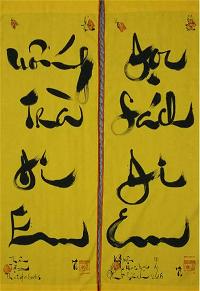 Uống
Trà
Đi
Em
Đọc
Sách
Đi
Em